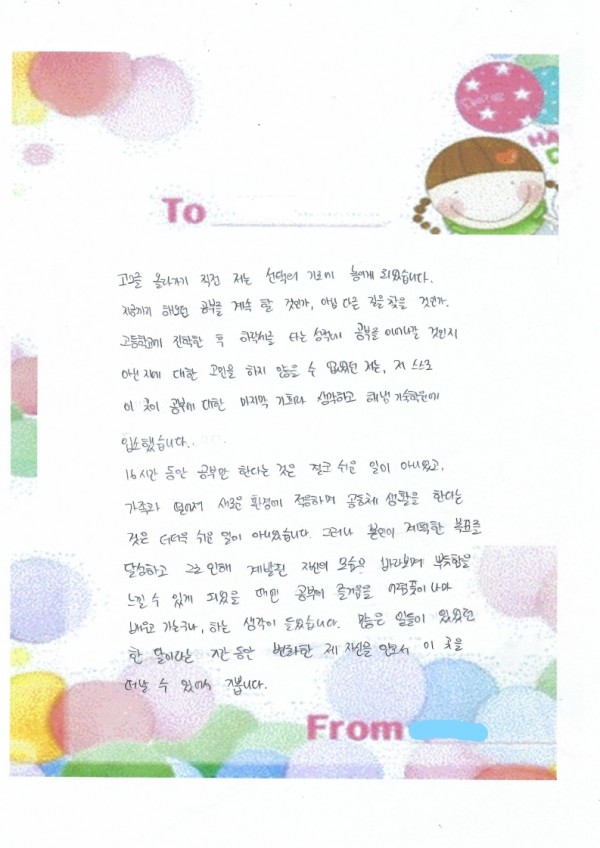 To
고1을 올라가기 직전 저는 선택의 기로에 놓이게 되었습니다.
지금까지 해오던 공부를 계속 할 것인가, 아님 다른 길을 찾을 것인가.
고등학교에 진학한 후 하락세를 타는 성적에 공부를 이어나갈 것인지
아닌지에 대한 고민을 하지 않을 수 없었던 저는, 저 스스로
이 곳이 공부에 대한 마지막 기회라 생각하고 해냄 기숙학원에
입소했습니다.
16시간 동안 공부만 한다는 것은 결코 쉬운 일이 아니었고,
가족과 떨어져 새로운 환경에 적응하며 공동체 생활을 한다는
것은 더더욱 쉬운 일이 아니었습니다. 그러나 본인이 계획한 목표를
달성하고 그로 인해 계발된 자신의 모습을 바라보며 뿌듯함을
느낄 수 있게 되었을 때엔 공부의 즐거움을 어렴풋이나마
배우고 가는구나, 하는 생각이 들었습니다. 많은 일들이 있었던
한 달이라는 기간 동안 변화한 제 자신을 안고서 이 곳을
떠날 수 있어서 기쁩니다.
From